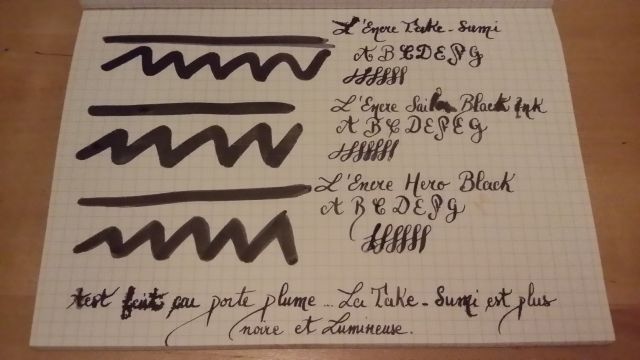 L'Encre Take-Sumi
A B C D E F G
L'Encre Sailor Black Ink
A B C D E F E G
L'Encre Hero Black
A B C D E F G
test fait au porte plume ... La Take-Sumi est plus
noire et Lumineuse.